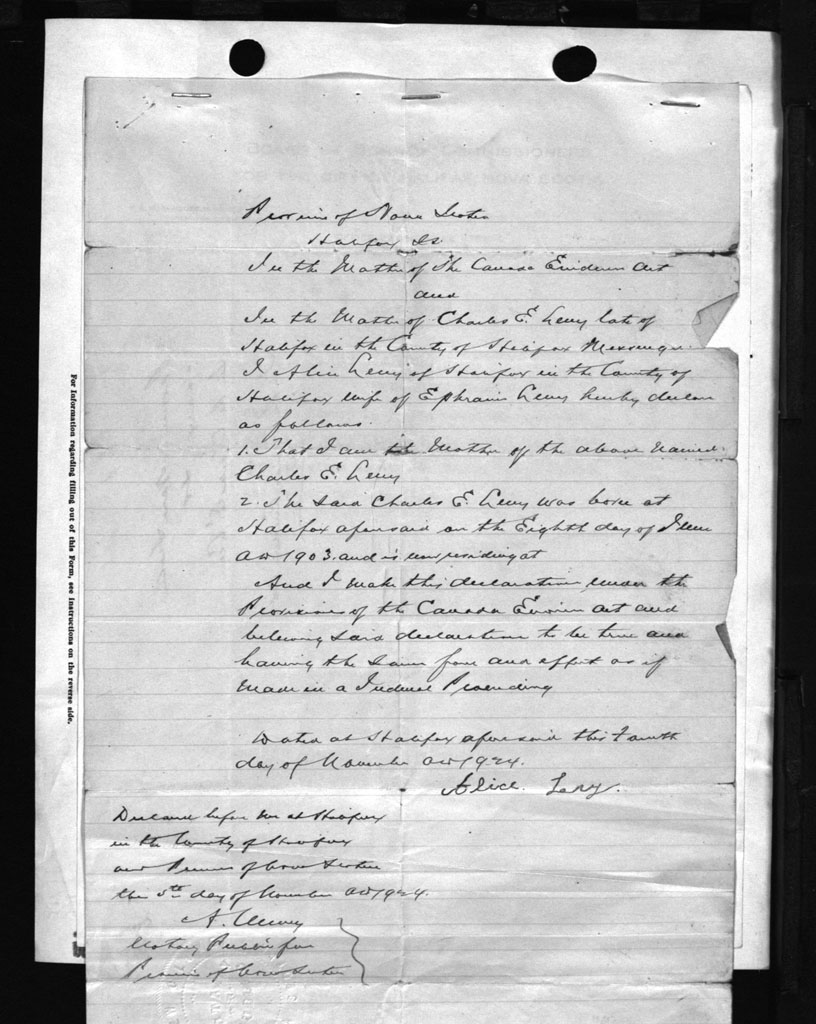 Province of Nova Scotia
Halifax SS
In the Matter of The Canada Evidence Act
and
In the Matter of Charles E. Levy late of
Halifax in the County of Halifax Messenger.
I Alice Levy of Halifax in the County of
Halifax wife of Ephraim Levy hereby declare
as follows.
1. That I am the Mother of the above Named
Charles E. Levy
2. The said Charles E. Levy was born at
Halifax aforesaid on the Eighth day of June
AD 1903. and is now residing at
And I make this declaration under the
Provisions of the Canada Evidence Act and
believing said declaration to be true and
having the same force and effect as if
made in a Judicial Proceeding
Dated at Halifax aforesaid this Fourth
day of November AD 1924.
Alice. Levy.
Declared before me at Halifax
in the County of Halifax
and Province of Nova Scotia
this 5th day of November AD 1924.
A.
Notary Public for
Province of Nova Scotia
For Information regarding filling out of this Form, see Instructions on the reverse side.